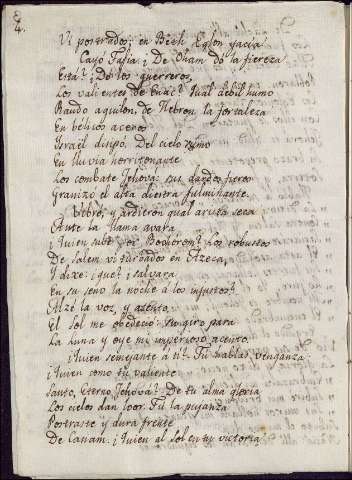 Vi postrados; en Bích Eglon yacía
Cayó Jafia; i De Oham dó la fiereza
Está? ¡Dó los guerreros,
Los valientes de Qual debil humo
Raudo aquilon, de Hebron la fortaleza
En bélicos aceros
Israël disipó. Del cielo sumo
En lluvia horritonante
Los combate Jehová: sus dardos fieros
Granizó el alta diestra fulminante.
Vibró, y ardieron qual arista seca
Ante la llama avara
¡Quien sube, ói Bethorom? Los robustos
De Salem vi turbados en Azeca,
Y dixe: ¡que? ¡salvará
En su seno la noche á los injustos?
Alzé la voz, y atento
El sol me obedeció: su giro para
La luna y oye mi imperioso acento.
¡Quien semejante á ti? Tú hablas venganza
¡Quien como tú valiente
Santo, Eterno Jehová? De tu alma gloria
Los cielos dan loor. Tú la pujanza
Postraste y dura frente
De Canam. ¡Quien al sol en tu victoria